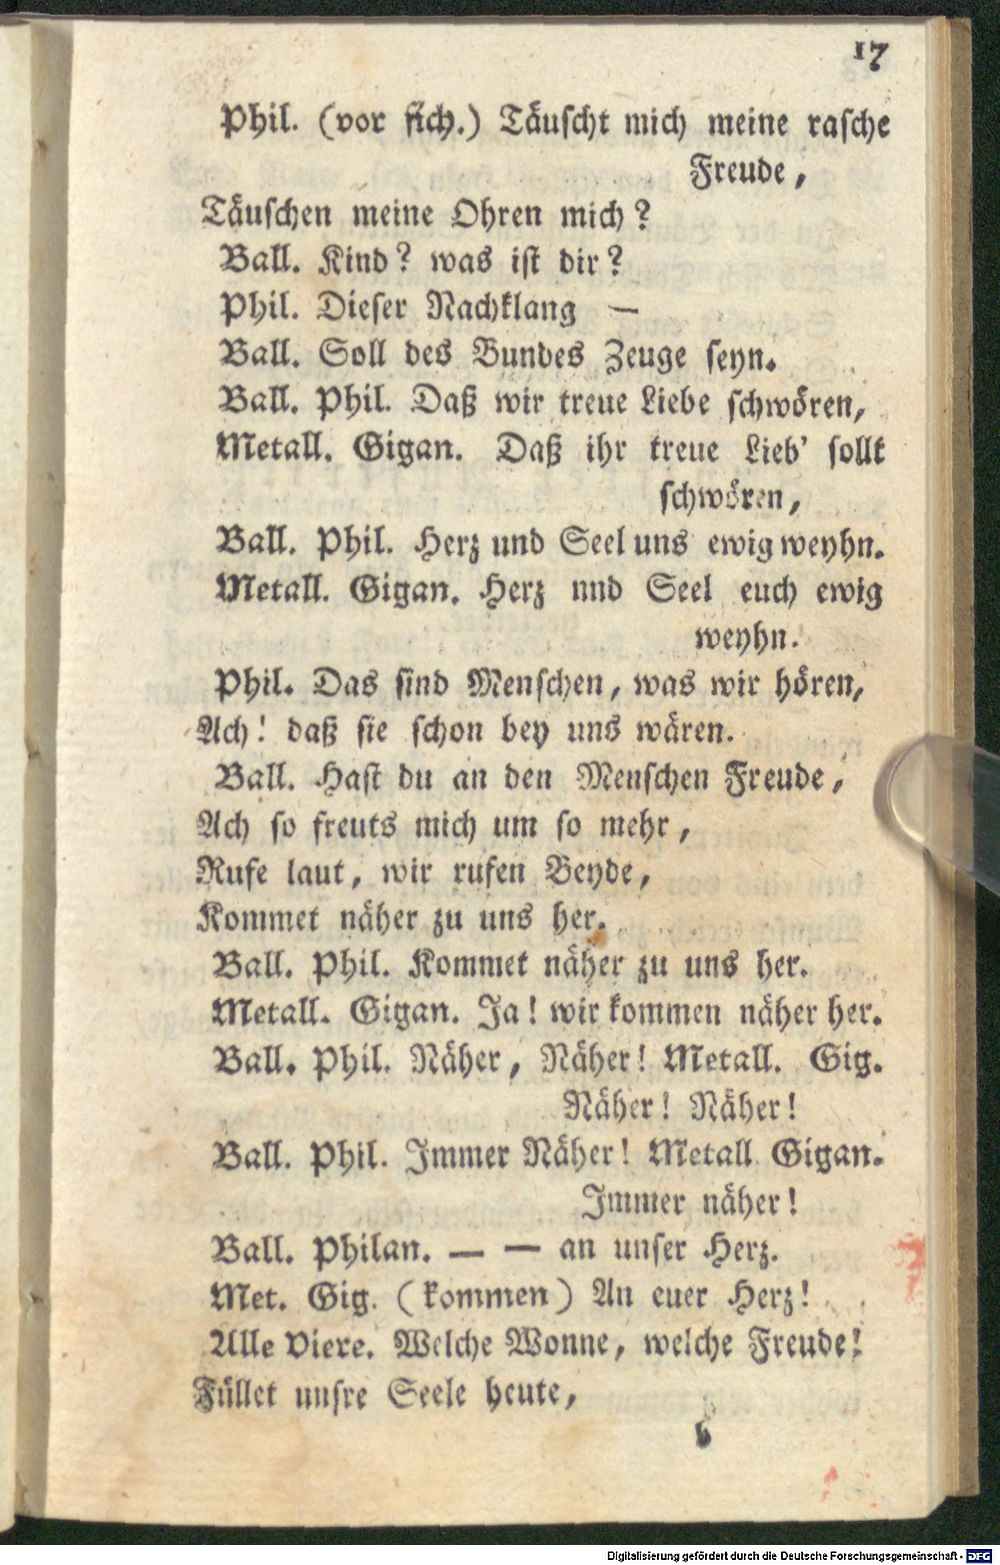 17
Phil. (vor sich.) Täuscht mich meine rasche
Freude,
Täuschen meine Ohren mich?
Ball. Kind? was ist dir?
Phil. Dieser Nachklang —
Ball. Soll des Bundes Zeuge seyn.
Ball. Phil. Daß wir treue Liebe schwören,
Metall. Gigan. Daß ihr treue Lieb' sollt
schwören,
Ball. Phil. Herz und Seel uns ewig weyhn.
Metall. Gigan. Herz und Seel euch ewig
weyhn.
Phil. Das sind Menschen, was wir hören,
Ach! daß sie schon bey uns wären.
Ball. Hast du an den Menschen Freude,
Ach so freuts mich um so mehr,
Rufe laut, wir rufen Beyde,
Kommet näher zu uns her.
Ball. Phil. Kommet näher zu uns her.
Metall. Gigan. Ja! wir kommen näher her.
Ball. Phil. Näher, Näher! Metall. Gig.
Näher! Näher!
Ball. Phil. Immer Näher! Metall Gigan.
Immer näher!
Ball. Philan. — — an unser Herz.
Met. Gig. (kommen) An euer Herz!
Alle Viere. Welche Wonne, welche Freude!
Füllet unsre Seele heute,
b
Digitalisierung gefördert durch die Deutsche Forschungsgemeinschaft - DFG